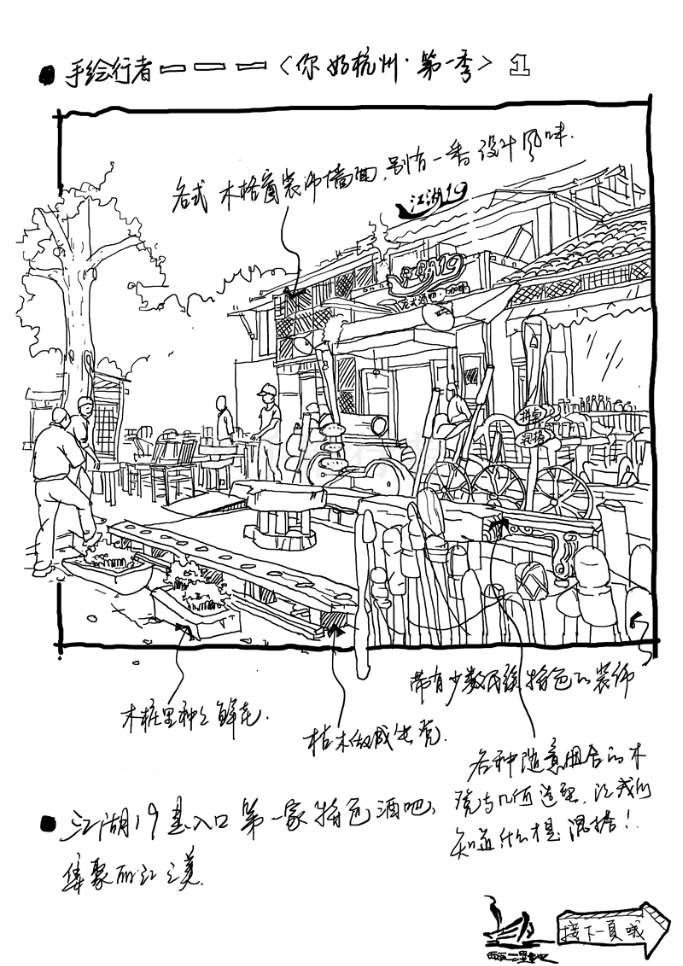 手绘行者———〈你好杭州·第一季〉 1
各式木格窗装饰墙面,别有一番设计风味.
江湖19
江湖19
木桩里种了鲜花.
枯木做成坐凳.
带有少数民族特色的装饰
各种随意组合的木
凳与几何造型,让我们
知道什么是混搭!
江湖19是入口第一家特色酒吧,
集聚丽江之美.
接下一頁哦